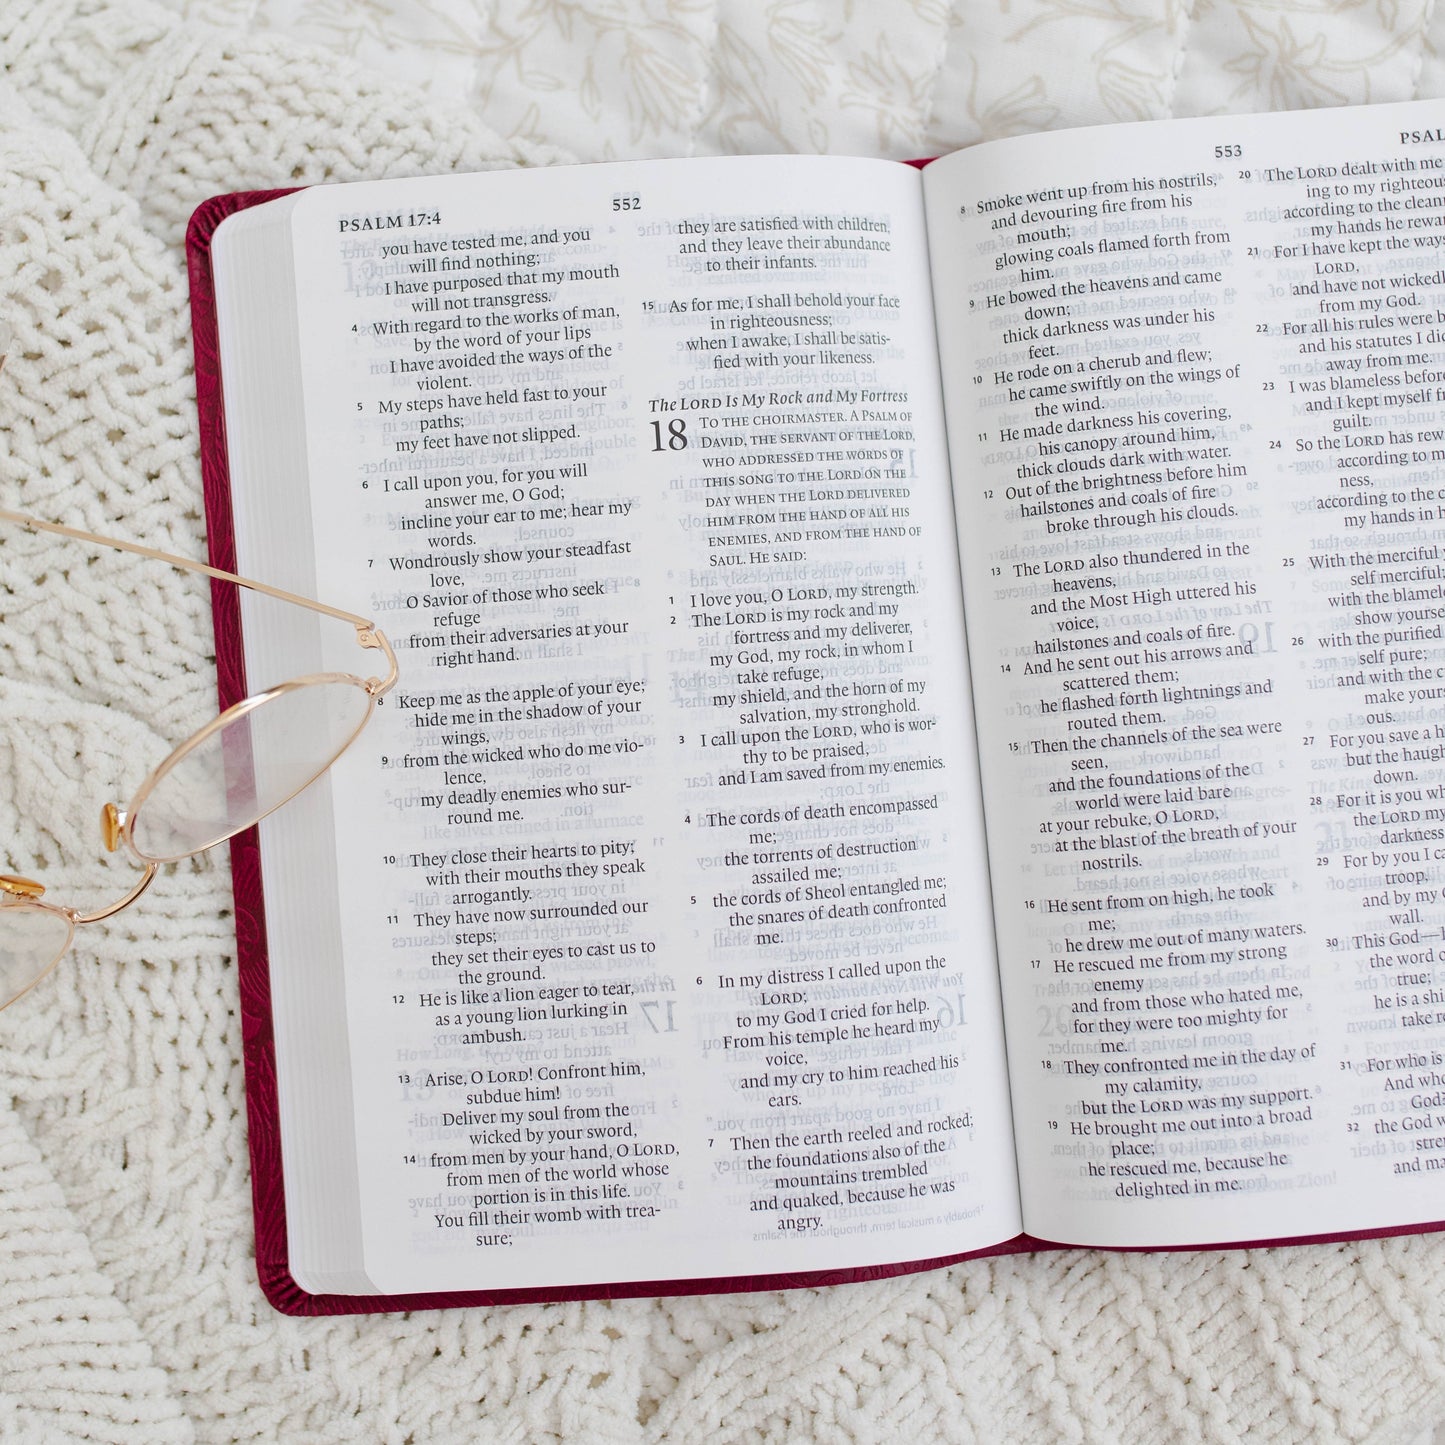 PSALM 17:4
552
you have tested me, and you
will find nothing;
I have purposed that my mouth
will not transgress.
4 With regard to the works of man,
by the word of your lips
I have avoided the ways of the
violent.
5 My steps have held fast to your
paths;
my feet have not slipped.
6 I call upon you, for you will
answer me, O God;
incline your ear to me; hear my
words.
7 Wondrously show your steadfast
love,
O Savior of those who seek
refuge
from their adversaries at your
right hand.
8 Keep me as the apple of your eye;
hide me in the shadow of your
wings,
9 from the wicked who do me vio-
lence,
my deadly enemies who sur-
round me.
10 They close their hearts to pity;
with their mouths they speak
arrogantly.
11 They have now surrounded our
steps;
they set their eyes to cast us to
the ground.
12 He is like a lion eager to tear,
as a young lion lurking in
ambush.
13 Arise, O LORD! Confront him,
subdue him!
Deliver my soul from the
wicked by your sword,
14 from men by your hand, O LORD,
from men of the world whose
portion is in this life.
You fill their womb with trea-
sure;
they are satisfied with children,
and they leave their abundance
to their infants.
15 As for me, I shall behold your face
in righteousness;
when I awake, I shall be satis-
fied with your likeness.
The LORD Is My Rock and My Fortress
18 TO THE CHOIRMASTER. A PSALM OF
DAVID, THE SERVANT OF THE LORD,
WHO ADDRESSED THE WORDS OF
THIS SONG TO THE LORD ON THE
DAY WHEN THE LORD DELIVERED
HIM FROM THE HAND OF ALL HIS
ENEMIES, AND FROM THE HAND OF
SAUL. HE SAID:
1 I love you, O LORD, my strength.
2 The LORD is my rock and my
fortress and my deliverer,
my God, my rock, in whom I
take refuge,
my shield, and the horn of my
salvation, my stronghold.
3 I call upon the LORD, who is wor-
thy to be praised,
and I am saved from my enemies.
4 The cords of death encompassed
me;
the torrents of destruction
assailed me;
5 the cords of Sheol entangled me;
the snares of death confronted
me.
6 In my distress I called upon the
LORD;
to my God I cried for help.
From his temple he heard my
voice,
and my cry to him reached his
ears.
7 Then the earth reeled and rocked;
the foundations also of the
mountains trembled
and quaked, because he was
angry.
553
8 Smoke went up from his nostrils,
and devouring fire from his
mouth;
glowing coals flamed forth from
him.
9 He bowed the heavens and came
down;
thick darkness was under his
feet.
10 He rode on a cherub and flew;
he came swiftly on the wings of
the wind.
11 He made darkness his covering,
his canopy around him,
thick clouds dark with water.
12 Out of the brightness before him
hailstones and coals of fire
broke through his clouds.
13 The LORD also thundered in the
heavens,
and the Most High uttered his
voice,
hailstones and coals of fire.
14 And he sent out his arrows and
scattered them;
he flashed forth lightnings and
routed them.
15 Then the channels of the sea were
seen,
and the foundations of the
world were laid bare
at your rebuke, O LORD,
at the blast of the breath of your
nostrils.
16 He sent from on high, he took
me;
he drew me out of many waters.
17 He rescued me from my strong
enemy
and from those who hated me,
for they were too mighty for
me.
18 They confronted me in the day of
my calamity,
but the LORD was my support.
19 He brought me out into a broad
place;
he rescued me, because he
delighted in me.
PSAL
20 The LORD dealt with me
ing to my righteous
according to the clean
my hands he rewa
21 For I have kept the ways
LORD,
and have not wickedl
from my God.
22 For all his rules were b
and his statutes I did
away from me.
23 I was blameless before
and I kept myself fr
guilt.
24 So the LORD has rew
according to m
ness,
according to the c
my hands in h
25 With the merciful y
self merciful;
with the blamele
show yourse
26 with the purified
self pure;
and with the c
make yours
ous.
27 For you save a h
but the haugh
down.
28 For it is you wh
the LORD my
darkness
29 For by you I ca
troop,
and by my G
wall.
30 This God—h
the word o
true;
he is a shi
take re
31 For who is
And who
God?
32 the God w
stren
and ma